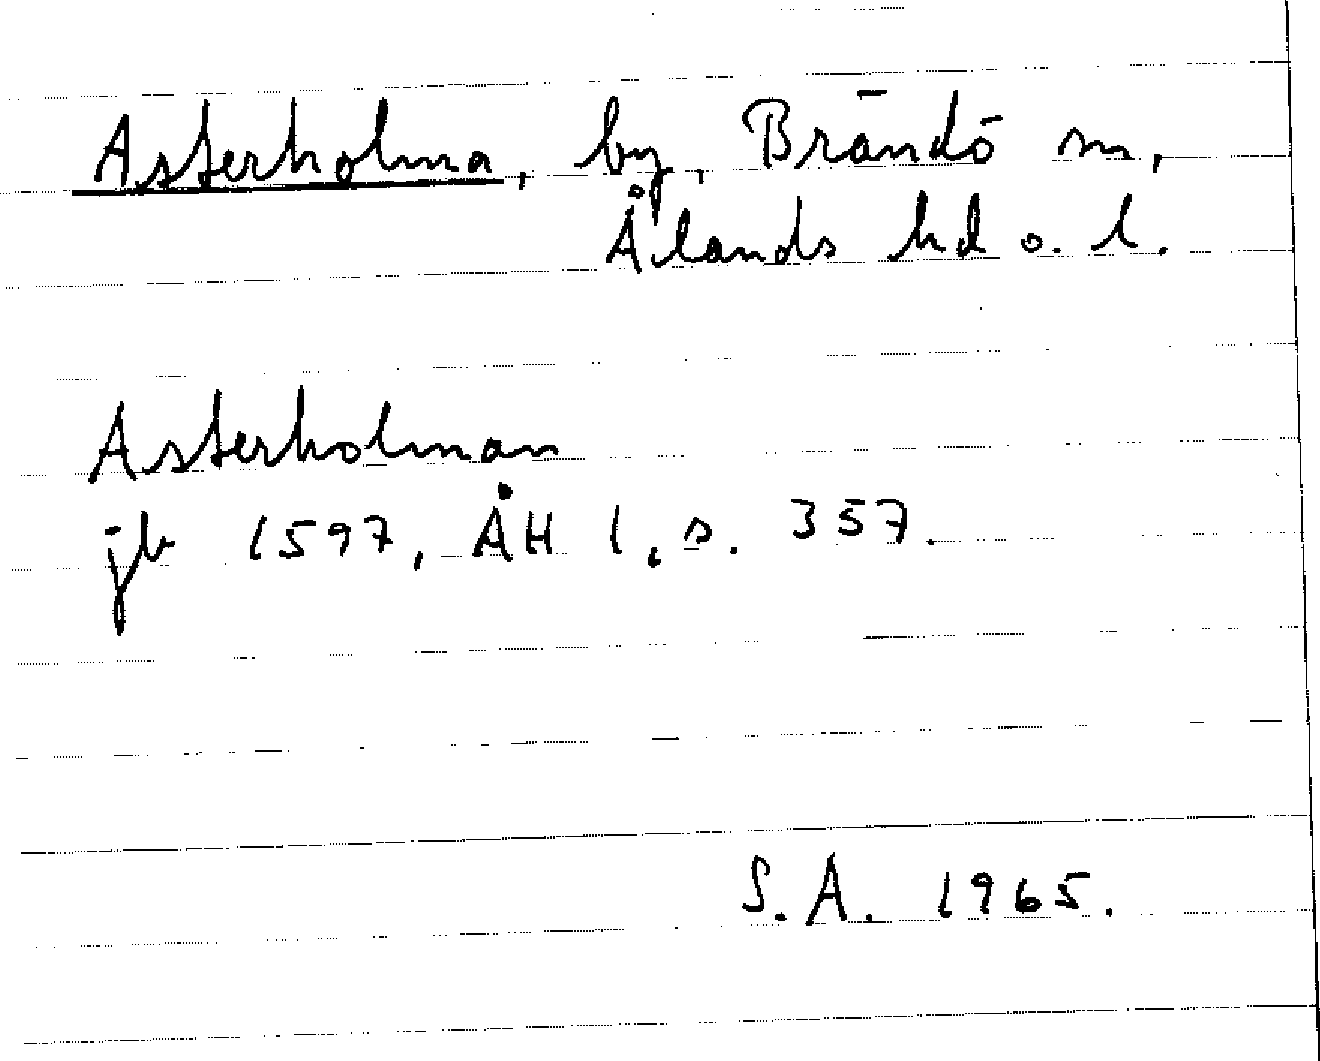 Asterholma, by, Brändö sn,
Ålands hd o. l.
Asterholman
jb 1597, ÅH 1, s. 357.
S. A. 1965.